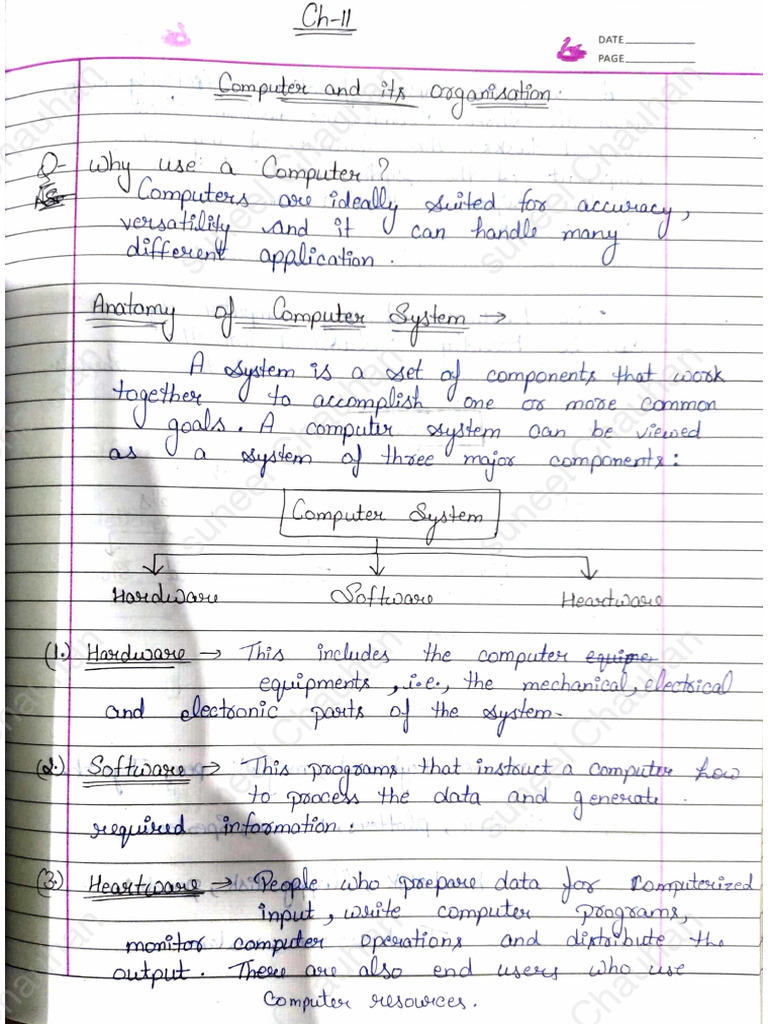 Ch-11
DATE
PAGE
Computer and its organisation.
Q- Why use a Computer?
Computers are ideally suited for accuracy,
versatility and it can handle many
different application.
Anatomy of Computer System →
A system is a set of components that work
together to accomplish one or more common
goals. A computer system can be viewed
as a system of three major components:
Computer System
Hardware Software Heartware
(1.) Hardware → This includes the computer equipe
equipments, i.e., the mechanical, electrical
and electronic parts of the system.
(2.) Software → This programs that instruct a computer how
to process the data and generate
required information.
(3.) Heartware → People who prepare data for computerized
input, write computer programs,
monitor computer operations and distribute the
output. There are also end users who use
computer resources.
suneel Chauhan